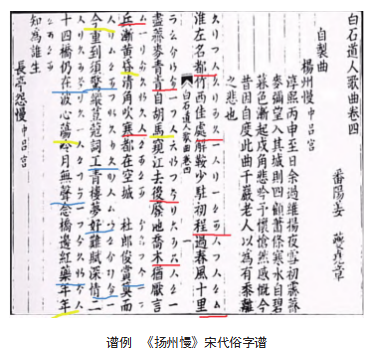 白石道人歌曲卷四
番陽姜 夔堯章
自製曲
揚州慢 中呂宮
淳熙丙申至日余過維揚夜雪初霽薺
麥彌望入其城則四顧蕭條寒水自碧
暮色漸起戍角悲吟予懷愴然感慨今
昔因自度此曲千巖老人以為有黍離
之悲也
淮左名都竹西佳處解鞍少駐初程過春風十里
白石道人歌曲卷四 一
盡薺麥青青自胡馬窺江去後廢池喬木猶厭言
兵漸黃昏清角吹寒都在空城 杜郎俊賞算而
今重到須驚縱荳蔻詞工青樓夢好難賦深情二
十四橋仍在波心蕩冷月無聲念橋邊紅藥年年
知為誰生
長亭怨慢 中呂宮
谱例 《扬州慢》宋代俗字谱